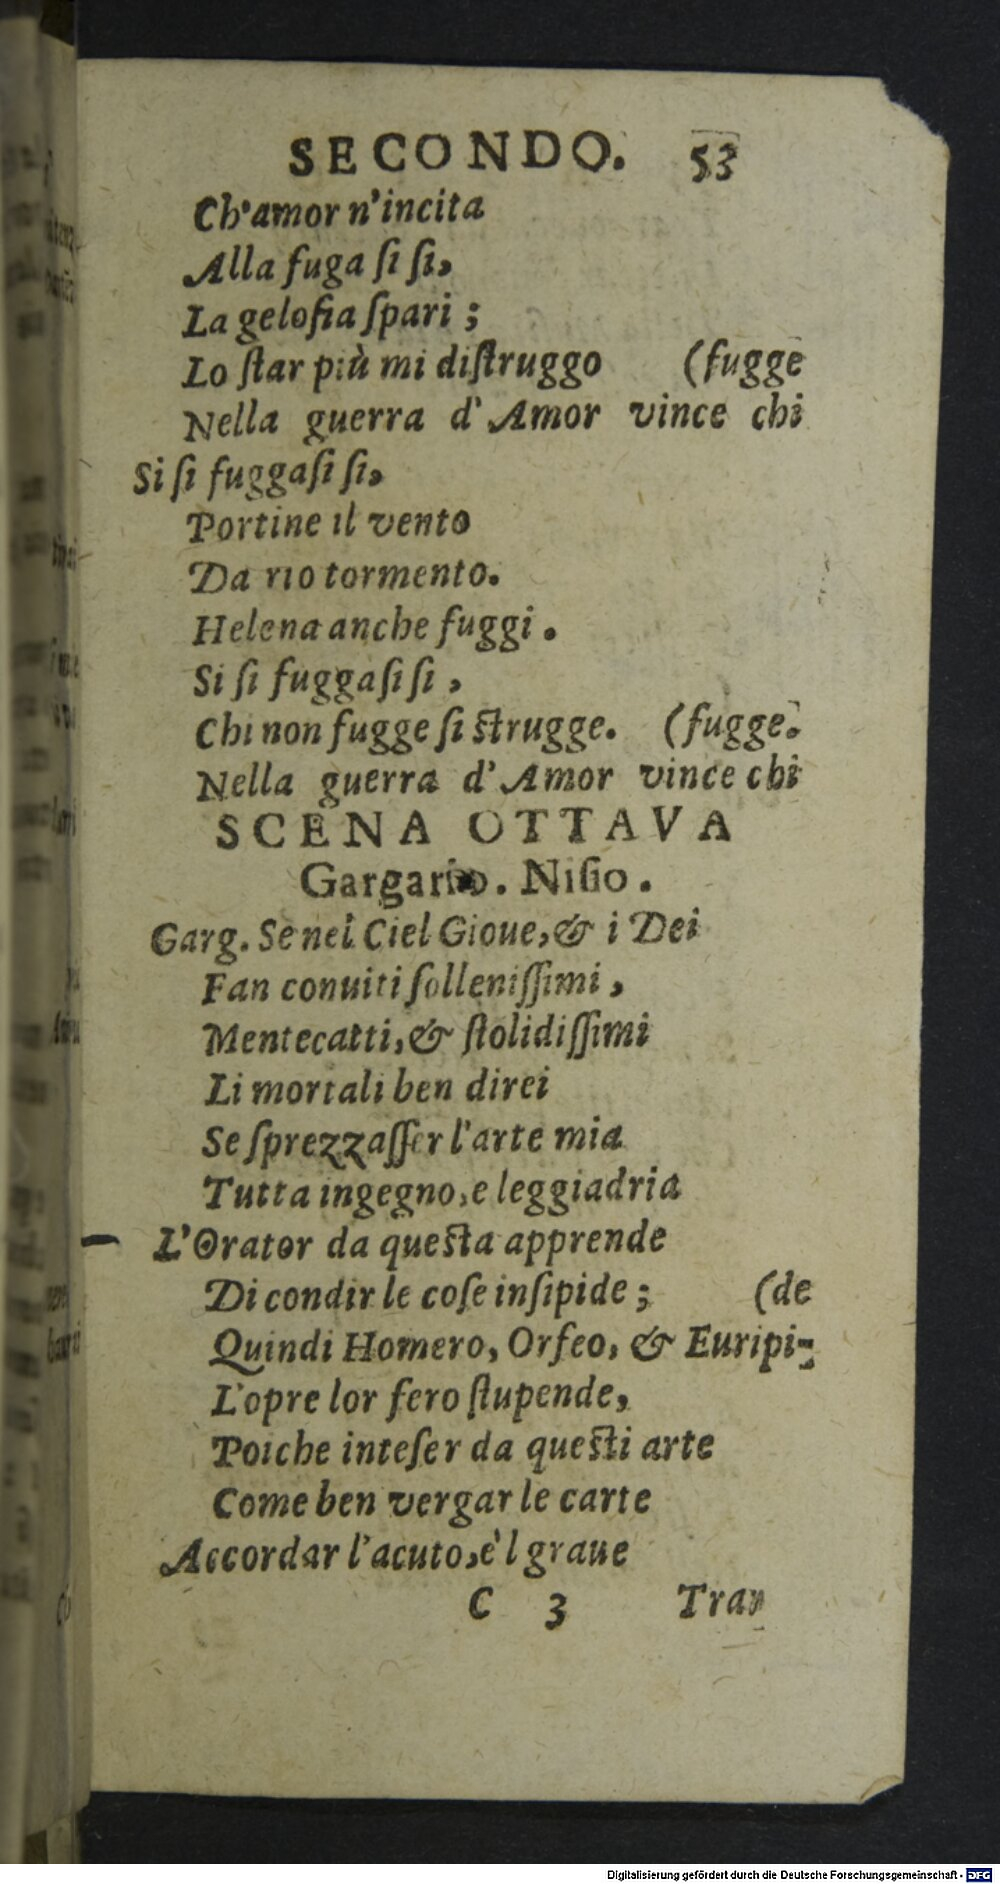 SECONDO. 53
Ch'amor n'incita
Alla fuga ſi ſi,
La geloſia ſpari ;
Lo ſtar più mi diſtruggo (fugge
Nella guerra d'Amor vince chi
Si ſi fuggaſi ſi,
Portine il vento
Da rio tormento.
Helena anche fuggi .
Si ſi fuggaſi ſi ,
Chi non fugge ſi ſtrugge. (fugge.
Nella guerra d'Amor vince chi
SCENA OTTAVA
Niſio .
Garg. Se nel Ciel Gioue, & i Dei
Fan conuiti ſolleniſſimi ,
Mentecatti, & ſtolidiſſimi
Li mortali ben direi
Se ſprezzaſſer l'arte mia
Tutta ingegno, e leggiadria
L'Orator da queſta apprende
Di condir le coſe inſipide ; (de
Quindi Homero, Orfeo, & Euripi-
L'opre lor fero ſtupende,
Poiche inteſer da queſti arte
Come ben vergar le carte
Accordar l'acuto, è l graue
C 3 Tran
Digitalisierung gefördert durch die Deutsche Forschungsgemeinschaft - DFG